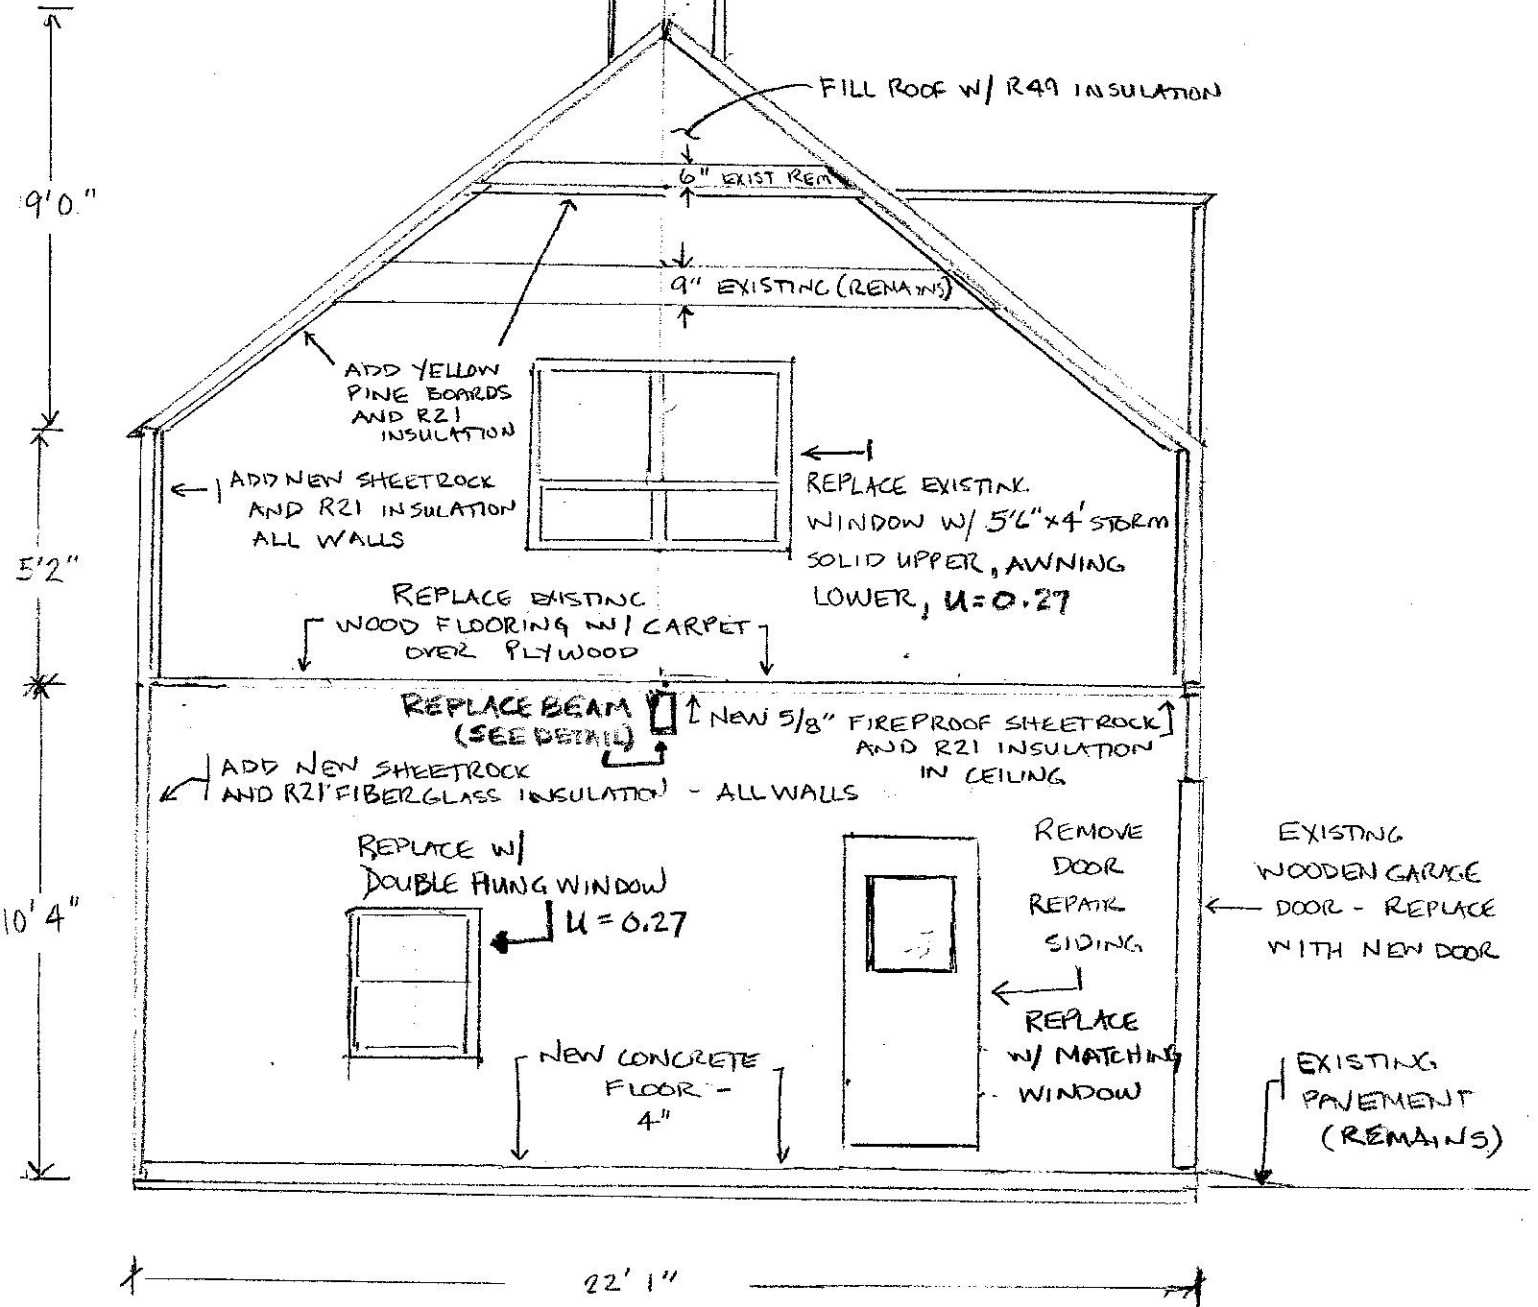 FILL ROOF W/ R49 INSULATION
6" EXIST REM
9'0"
9" EXISTING (REMAINS)
ADD YELLOW
PINE BOARDS
AND R21
INSULATION
ADD NEW SHEETROCK
AND R21 INSULATION
ALL WALLS
REPLACE EXISTING
WINDOW W/ 5'6" x 4' STORM
SOLID UPPER, AWNING
LOWER, U=0.27
5'2"
REPLACE EXISTING
WOOD FLOORING W/ CARPET
OVER PLYWOOD
REPLACE BEAM
(SEE DETAIL)
NEW 5/8" FIREPROOF SHEETROCK
AND R21 INSULATION
IN CEILING
ADD NEW SHEETROCK
AND R21 FIBERGLASS INSULATION - ALL WALLS
REPLACE W/
DOUBLE HUNG WINDOW
U = 0.27
REMOVE
DOOR
REPAIR
SIDING
REPLACE
W/ MATCHING
WINDOW
EXISTING
WOODEN GARAGE
DOOR - REPLACE
WITH NEW DOOR
10'4"
NEW CONCRETE
FLOOR -
4"
EXISTING
PAVEMENT
(REMAINS)
22' 1"